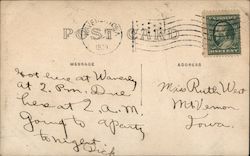 POST CARD
MESSAGE
ADDRESS
Got here at Waverly
at 2. P.M. Due
here at 2 A.M.
Going to a party
tonight.
Dick
Miss Ruth West
Mt Vernon
Iowa.